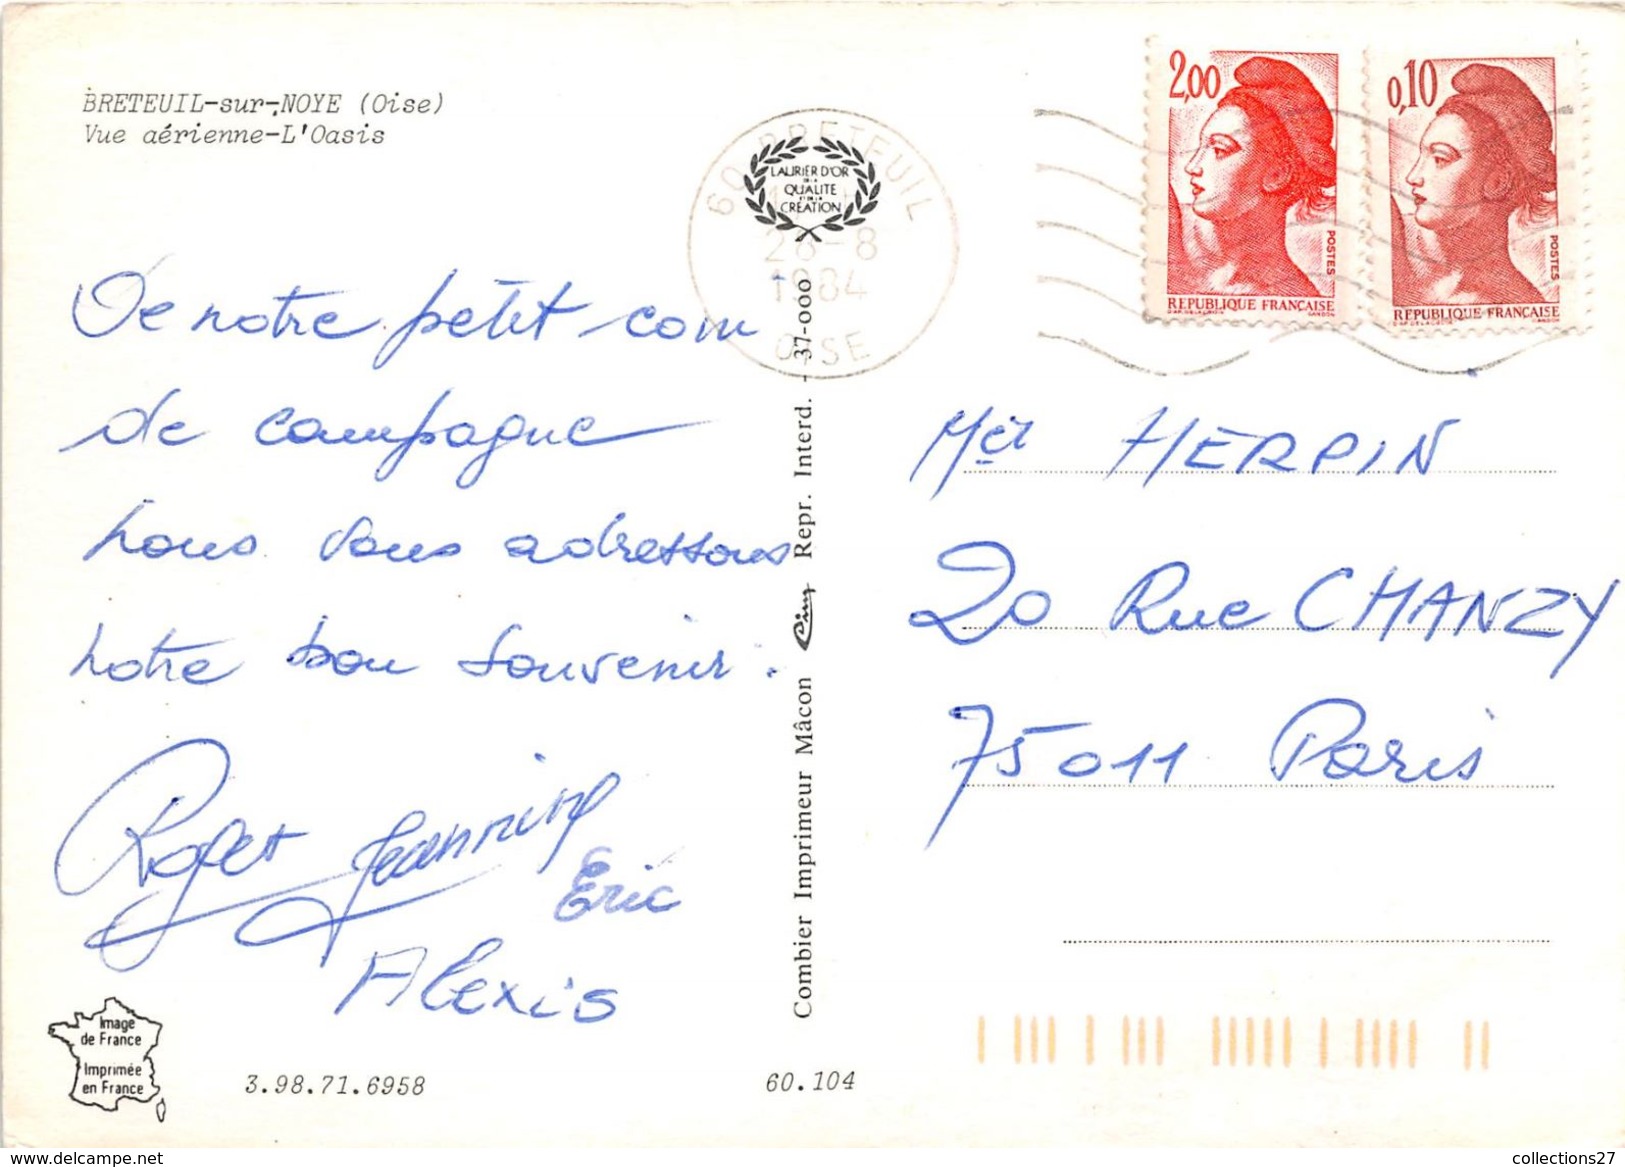 BRETEUIL-sur-NOYE (Oise)
Vue aérienne-L'Oasis
De notre petit coin
de campagne
nous vous adressons
notre bon souvenir.
Roger Jeannine
Eric
Alexis
Image
de France
Imprimée
en France
3.98.71.6958
60.104
60 BRETEUIL
28-8
1984
OISE
LAURIER D'OR
DE LA
QUALITE
ET DE LA
CRÉATION
Combier Imprimeur Mâcon Cim Repr. Interd. - 37-000
2,00
POSTES
REPUBLIQUE FRANÇAISE
D'AP. DELACROIX GANDON
0,10
POSTES
REPUBLIQUE FRANÇAISE
D'AP. DELACROIX GANDON
HERPIN
20 Rue CHANZY
75011 Paris
collections27
www.delcampe.net